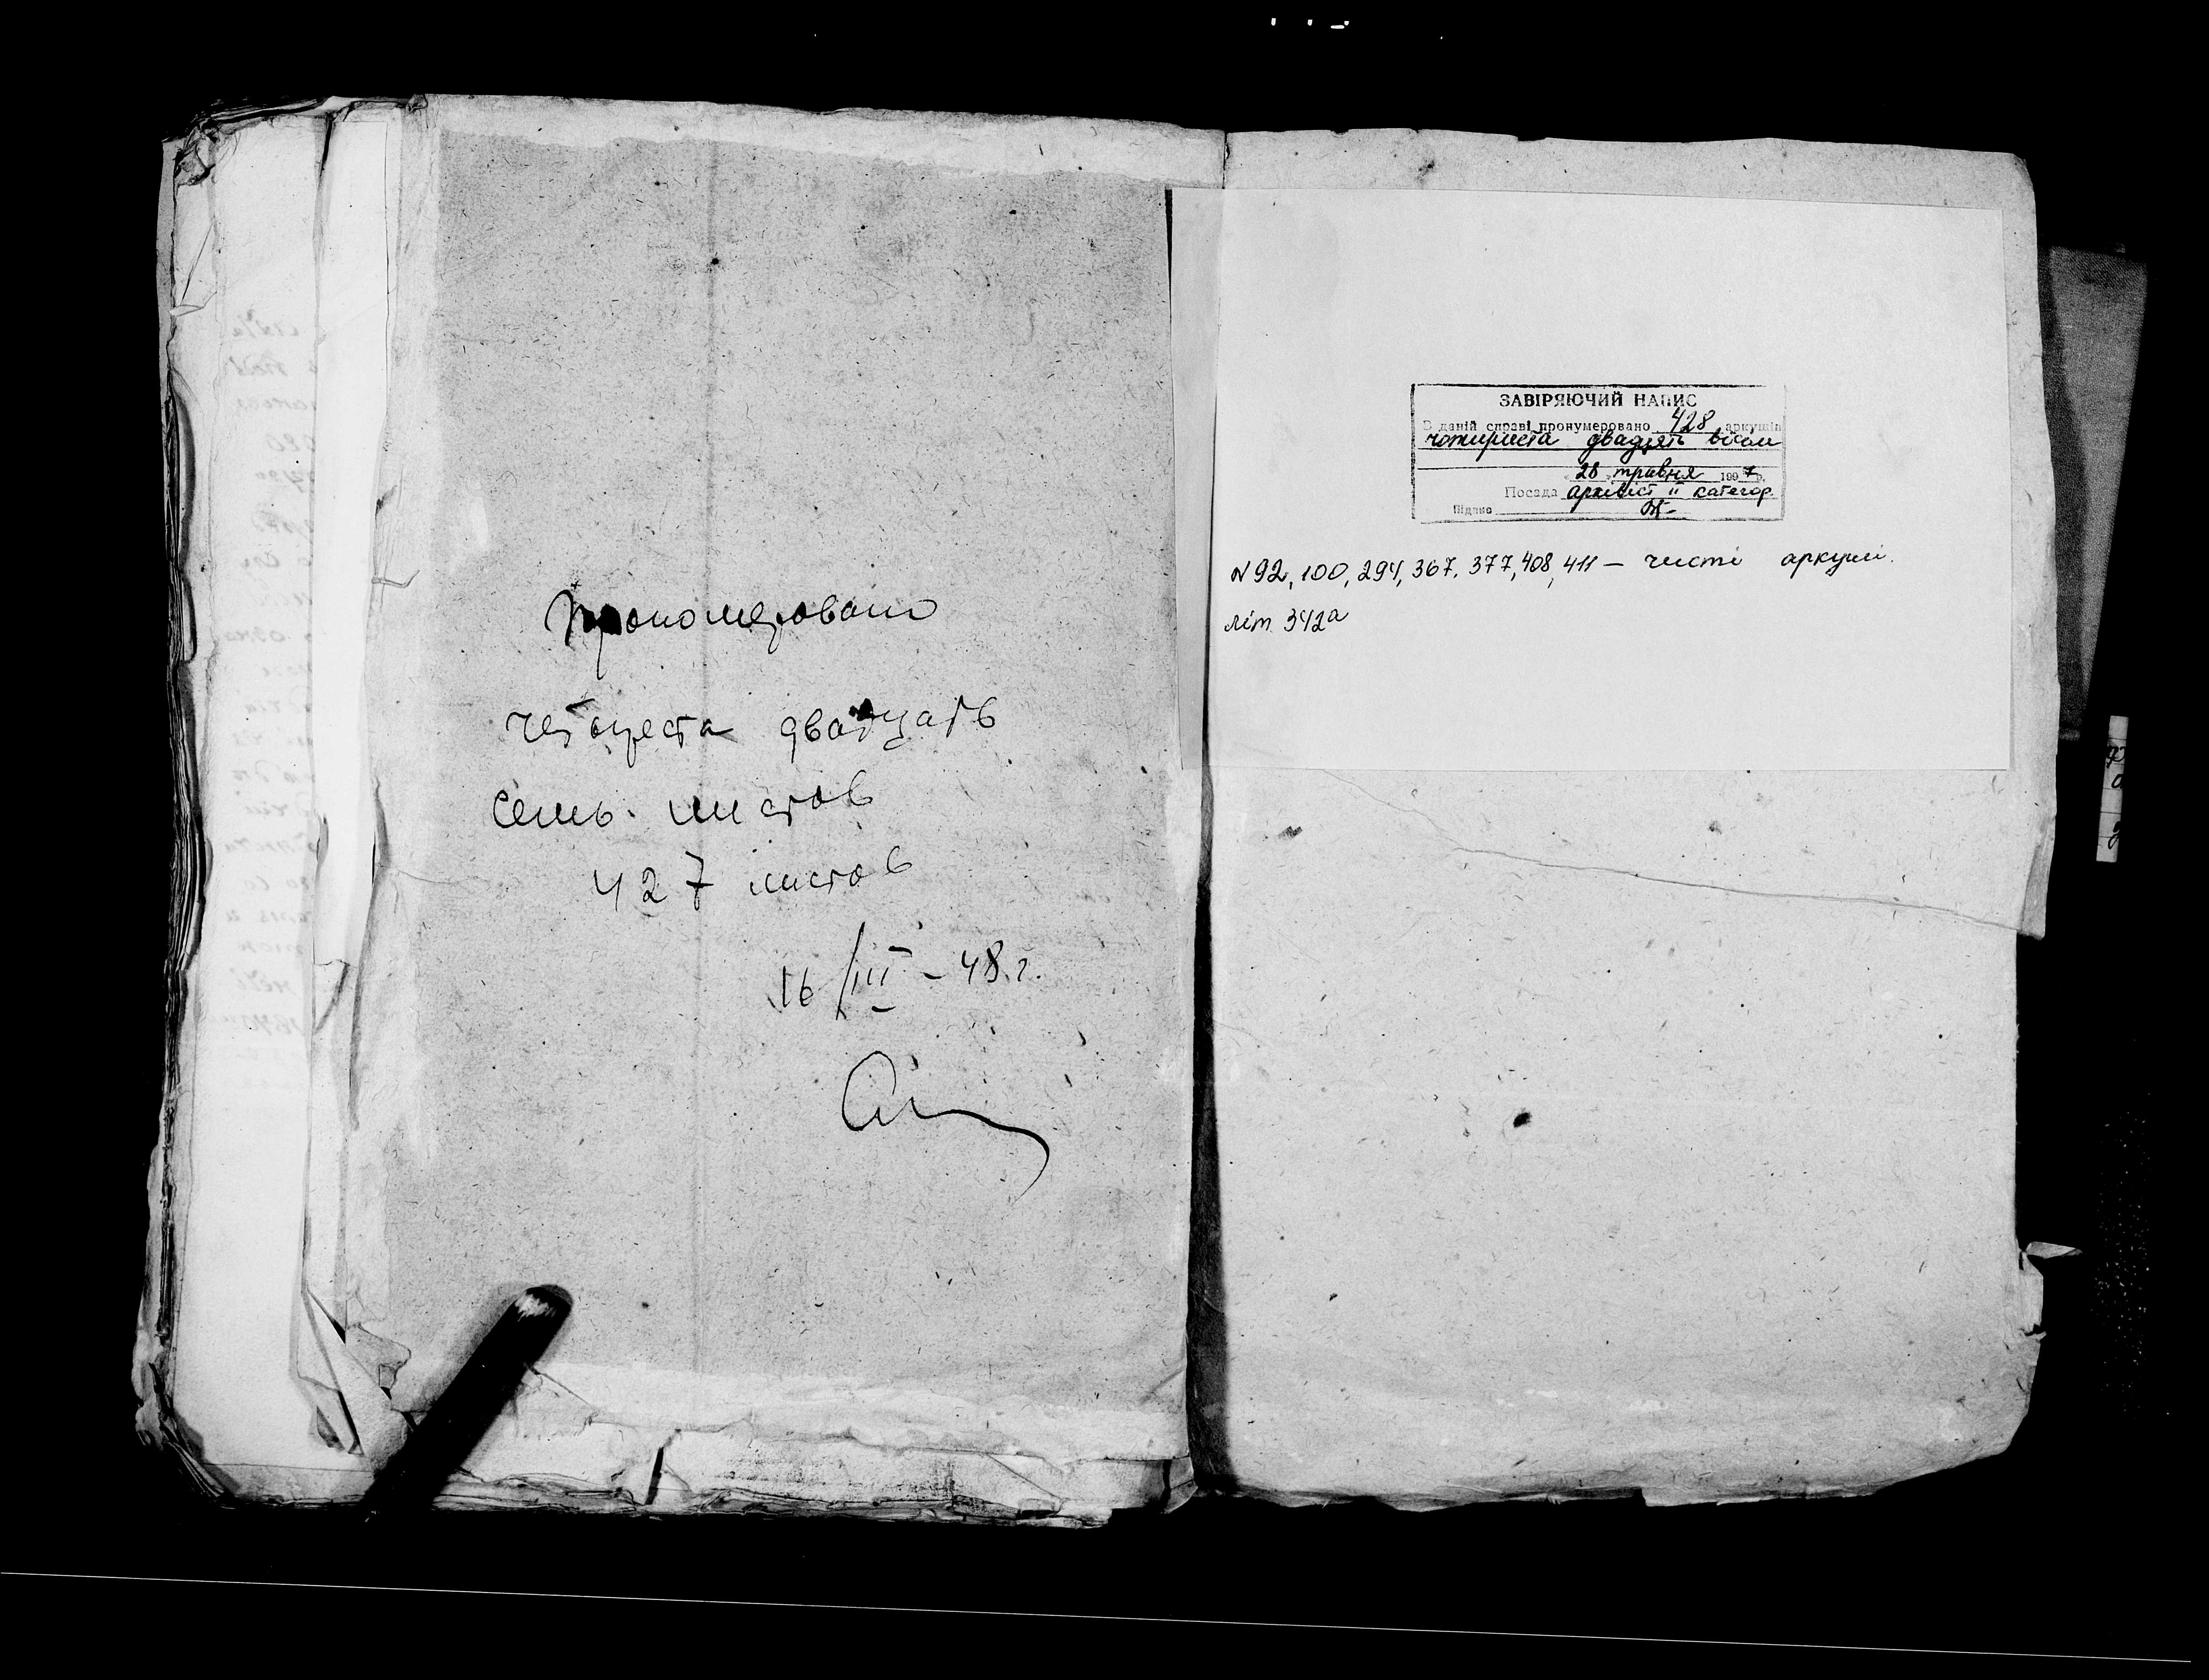 Прономеровано
четыреста двадцать
семь листов
427 листов
16/III – 48.г.
ЗАВІРЯЮЧИЙ НАПИС
В даній справі пронумеровано 428 аркушів
чотириста двадцять вісім
28 травня 1997 р.
Посада архівіст II категор.
Підпис
N 92, 100, 294, 367, 377, 408, 411 – чисті аркуші.
літ. 342а